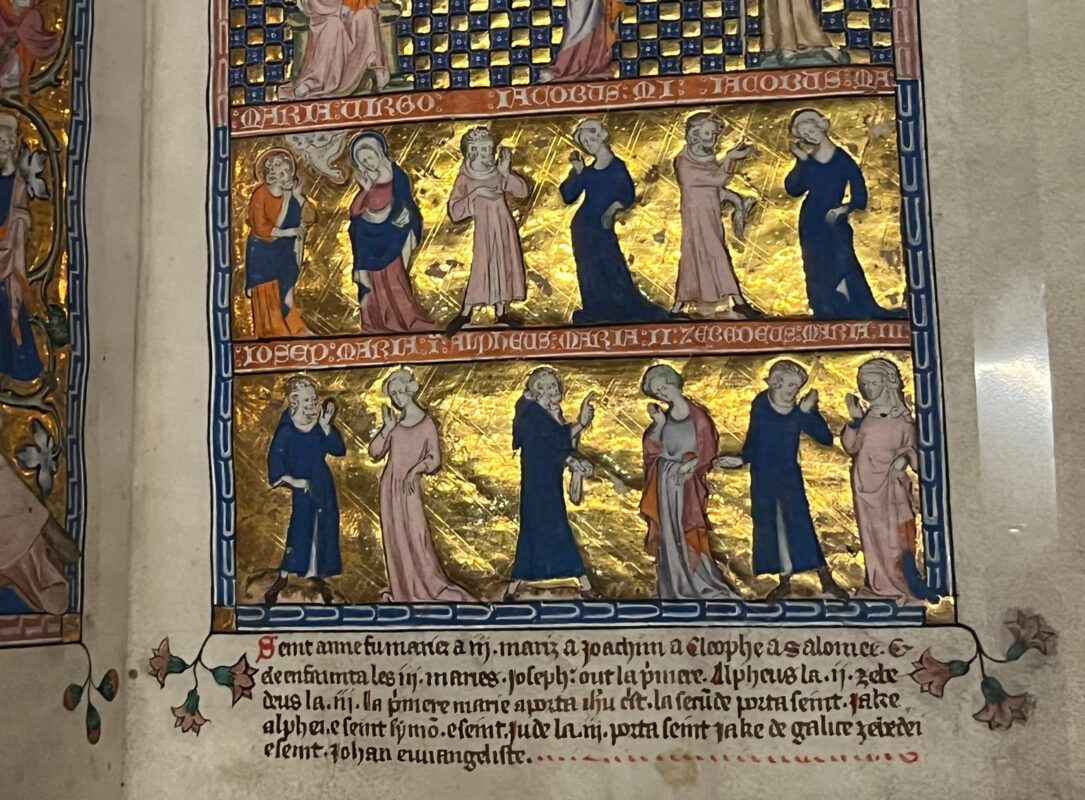 MARIA:UIRGO: :IACOBUS:MI: :IACOBUS:MA
:IOSEP:MARIA:I:ALPHEUS:MARIA:II:ZEBEDEUS:MARIA:III
Seint anne fu mariez a iij. mariz a Joachim a Cleophe a Salomee. E
de enfaunta les iij. maries. Joseph: out la p'mere. Alpheus la .ij. zebe
deus la .iij. la p'mere marie aporta ih'u c'st. la secu'de porta seint. Jake
alphei. e seint symo'. e seint. Jude la .iij. porta seint Jake de galice zebedei
e seint. Johan ewangeliste.